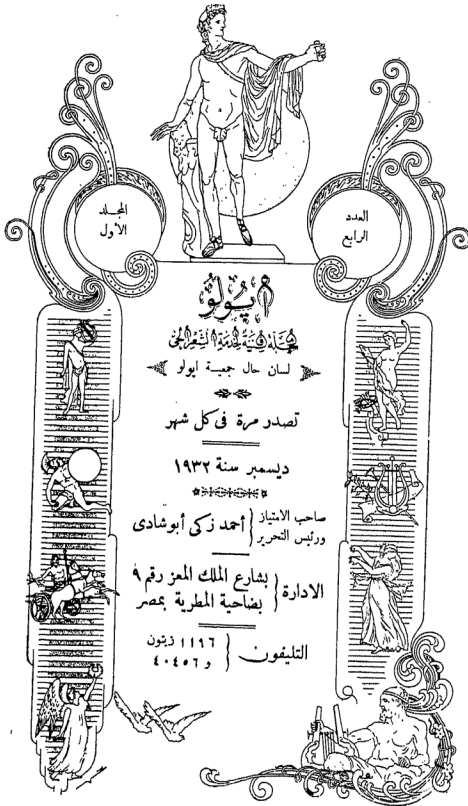 العدد
الرابع
المجلد
الأول
اپولو
مجلة فنية لخدمة الشعر الحي
لسان حال جمعية ابولو
تصدر مرة فى كل شهر
ديسمبر سنة ١٩٣٢
صاحب الامتياز ورئيس التحرير { أحمد زكى أبو شادى
الادارة { بشارع الملك المعز رقم ٩
بضاحية المطرية بمصر
التليفون { ١١٩٦ زيتون
و ٤٠٤٥٦